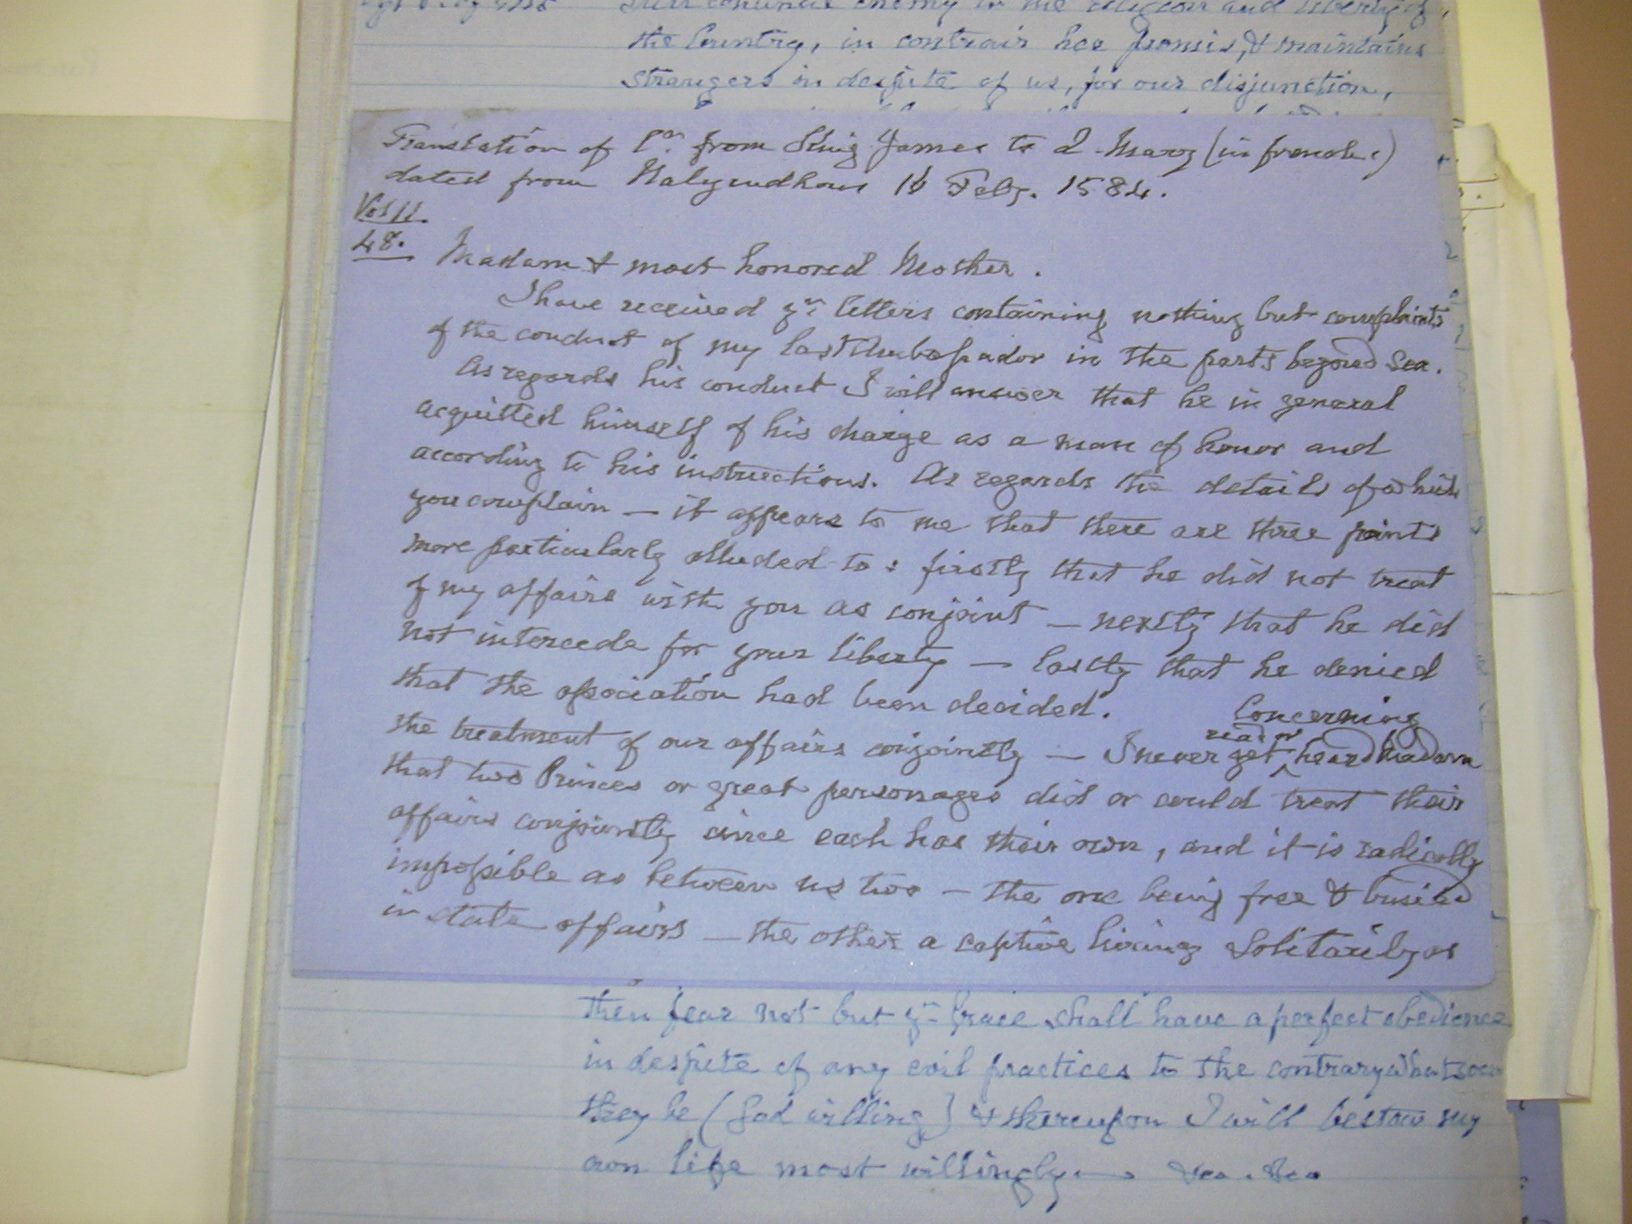 still continue enemy to the religion and liberty of
the Country, in contrair her promis, & maintains
strangers in despite of us, for our disjunction,
Translation of Lr. from King James to Q. Mary (in french.)
dated from Halyrudhous 16 Feby. 1584.
Vol 11.
48.
Madam & most honored Mother.
I have received yr letters containing nothing but complaints
of the conduct of my last Ambassador in the parts beyond Sea.
As regards his conduct I will answer that he in general
acquitted himself of his charge as a man of honor and
according to his instructions. As regards the details of which
you complain — it appears to me that there are three points
more particularly alluded to: firstly that he did not treat
of my affairs with you as conjoint — nextly that he did
not intercede for your liberty — lastly that he denied
that the association had been decided. Concerning
the treatment of our affairs conjointly — I never yet read or heard Madam
that two Princes or great personages did or could treat their
affairs conjointly since each has their own, and it is radically
impossible as between us two — the one being free & busied
in state affairs — the other a captive living solitarily as
then fear not but yr Grace shall have a perfect obedience
in despite of any evil practices to the contrary whatsoever
they be (God willing) & thereupon I will bestow my
own life most willingly — &ca. &ca